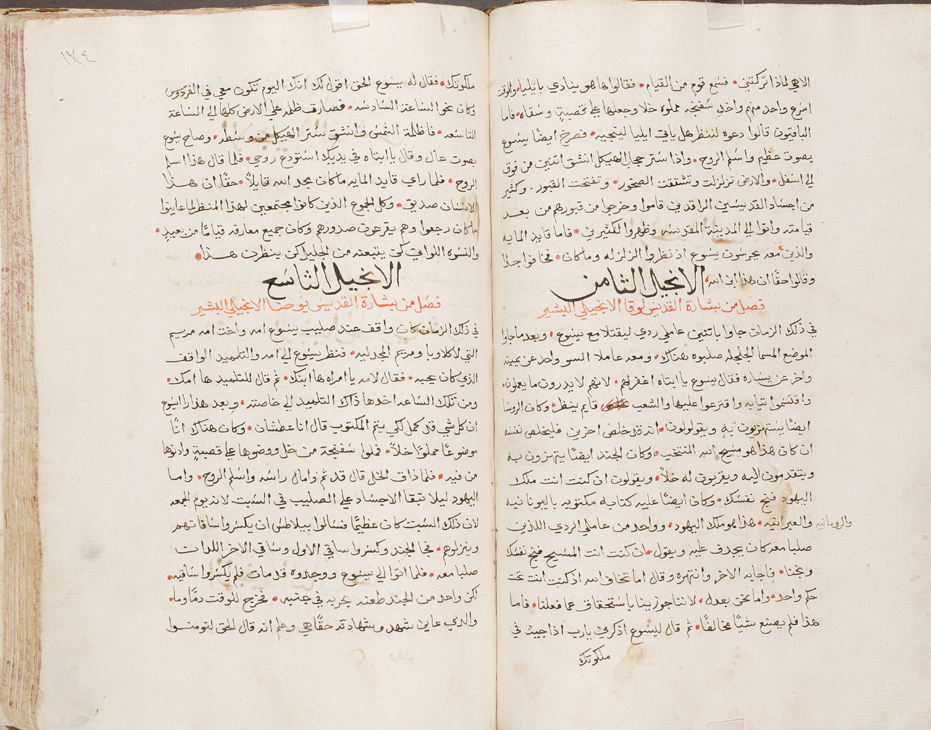 الاهي لماذا تركتني فسمع قوم من القيام فقالوا ها هو ينادي بايليا وللوقت
اسرع واحد منهم واخذ سفنجه مملوه خلا وجعلها على قصبةٍ وسقاه فاما
الباقيون قالوا دعوه لننظر هل ياتي ايليا لينجيه فصرخ ايضًا يسوع
بصوت عظيم واسلم الروح واذا ستر حجاب الهيكل انشق اثنين من فوق
الى اسفل والارض تزلزلت وتشققت الصخور وتفتحت القبور وكثير
من اجساد القديسين الراقدين قاموا وخرجوا من قبورهم من بعد
قيامته واتوا الى المدينة المقدسه وظهروا لكثيرين فاما قايد المايه
والذين معه يحرسون يسوع اذ نظروا الزلزله وما كان فخافوا جدا
وقالوا حقًا ان هذا ابن الله
الانجيل الثامن
فصل من بشارة القديس لوقا الانجيلي البشير
في ذلك الزمان جاوا باثنين عاملي ردي ليقتلا مع يسوع وبعد ما جاوا
الموضع المسما الجلجله صلبوه هناك ومعه عاملا السو واحد عن يمينه
واخر عن يساره فقال يسوع يا ابتاه اغفر لهم لانهم لا يدرون ما يعملون
واقتسموا ثيابه واقترعوا عليها والشعب قايم ينظر وكان الروسا
ايضًا يستهزيون به ويقولولون انه قد خلص اخرين فليخلص نفسه
ان كان هذا هو مسيح الله المنتخب وكان الجند ايضًا يتهزون به
ويتقدمون اليه ويقربون له خلاً ويقولون ان كنت انت ملك
اليهود فنج نفسك وكان ايضًا عليه كتابه مكتوبه باليونانيه
والرومانيه والعبرانيه هذا هو ملك اليهود وواحد من عاملي الردي اللذين
صلبا معه كان يجدف عليه ويقول ان كنت انت المسيح فنج نفسك
ونجنا فاجابه الاخر وانتهره وقال اما تخاف الله اذ كنت انت تحت
حكم واحد واما نحن بعدل لاننا جوزينا باستحقاق عما فعلنا فاما
هذا فلم يصنع شيًا مخالفًا ثم قال ليسوع اذكرني يا رب اذا جيت في
ملكوتك
١٧٤
ملكوتك فقال له يسوع الحق اقول لك انك اليوم تكون معي في الفردوس
وكان نحو الساعة السادسه فصارت ظلمه على الارض كلها الى الساعة
التاسعه فاظلمة الشمس وانشق ستر الهيكل من وسطه وصاح يسوع
بصوت عال وقال يا ابتاه في يديك استودع روحي فلما قال هذا اسلم
الروح فلما راى قايد المايه ما كان مجد الله قايلاً حقًا ان هذا
الانسان صديق وكل الجموع الذين كانوا مجتمعين لهذا المنظر لما عاينوا
ما كان رجعوا وهم يقرعون صدورهم وكان جميع معارفه قيامًا من بعيدٍ
والنسوه اللواتي كن يتبعنه من الجليل كن ينظرن هذا
الانجيل التاسع
فصل من بشارة القديس يوحنا الانجيلي البشير
في ذلك الزمان كان واقف عند صليب يسوع امه واخت امه مريم
التي لاكلاوبا ومريم المجدليه فنظر يسوع الى امه والتلميد الواقف
الذي كان يحبه فقال لامه يا امراه ها ابنك ثم قال للتلميد ها امك
ومن تلك الساعه اخدها ذاك التلميد الى خاصته وبعد هذا راى يسوع
ان كل شي قد كمل لكي يتم المكتوب قال انا عطشان وكان هناك انآ
موضوعًا مملوًا خلاً فملوا سفنجة من خل ووضعوها على قصبةٍ وادنوها
من فيه فلما ذاق الخل قال قد تم وامال راسه واسلم الروح واما
اليهود ليلا تبقا الاجساد على الصليب في السبت لانه يوم الجمعه
لان ذلك السبت كان عظيمًا فسالوا بيلاطس ان يكسروا ساقاتهم
وينزلوهم فجا الجند وكسروا ساقي الاول وساقي الاخر اللذان
صلبا معه فلما اتوا الى يسوع ووجدوه قد مات فلم يكسروا ساقيه
لكن واحد من الجند طعنه بحربه في جنبه فخرج للوقت دمًا وما
والذي عاين شهد وشهادته حقًا هي وعلم انه قال الحق لتومنوا